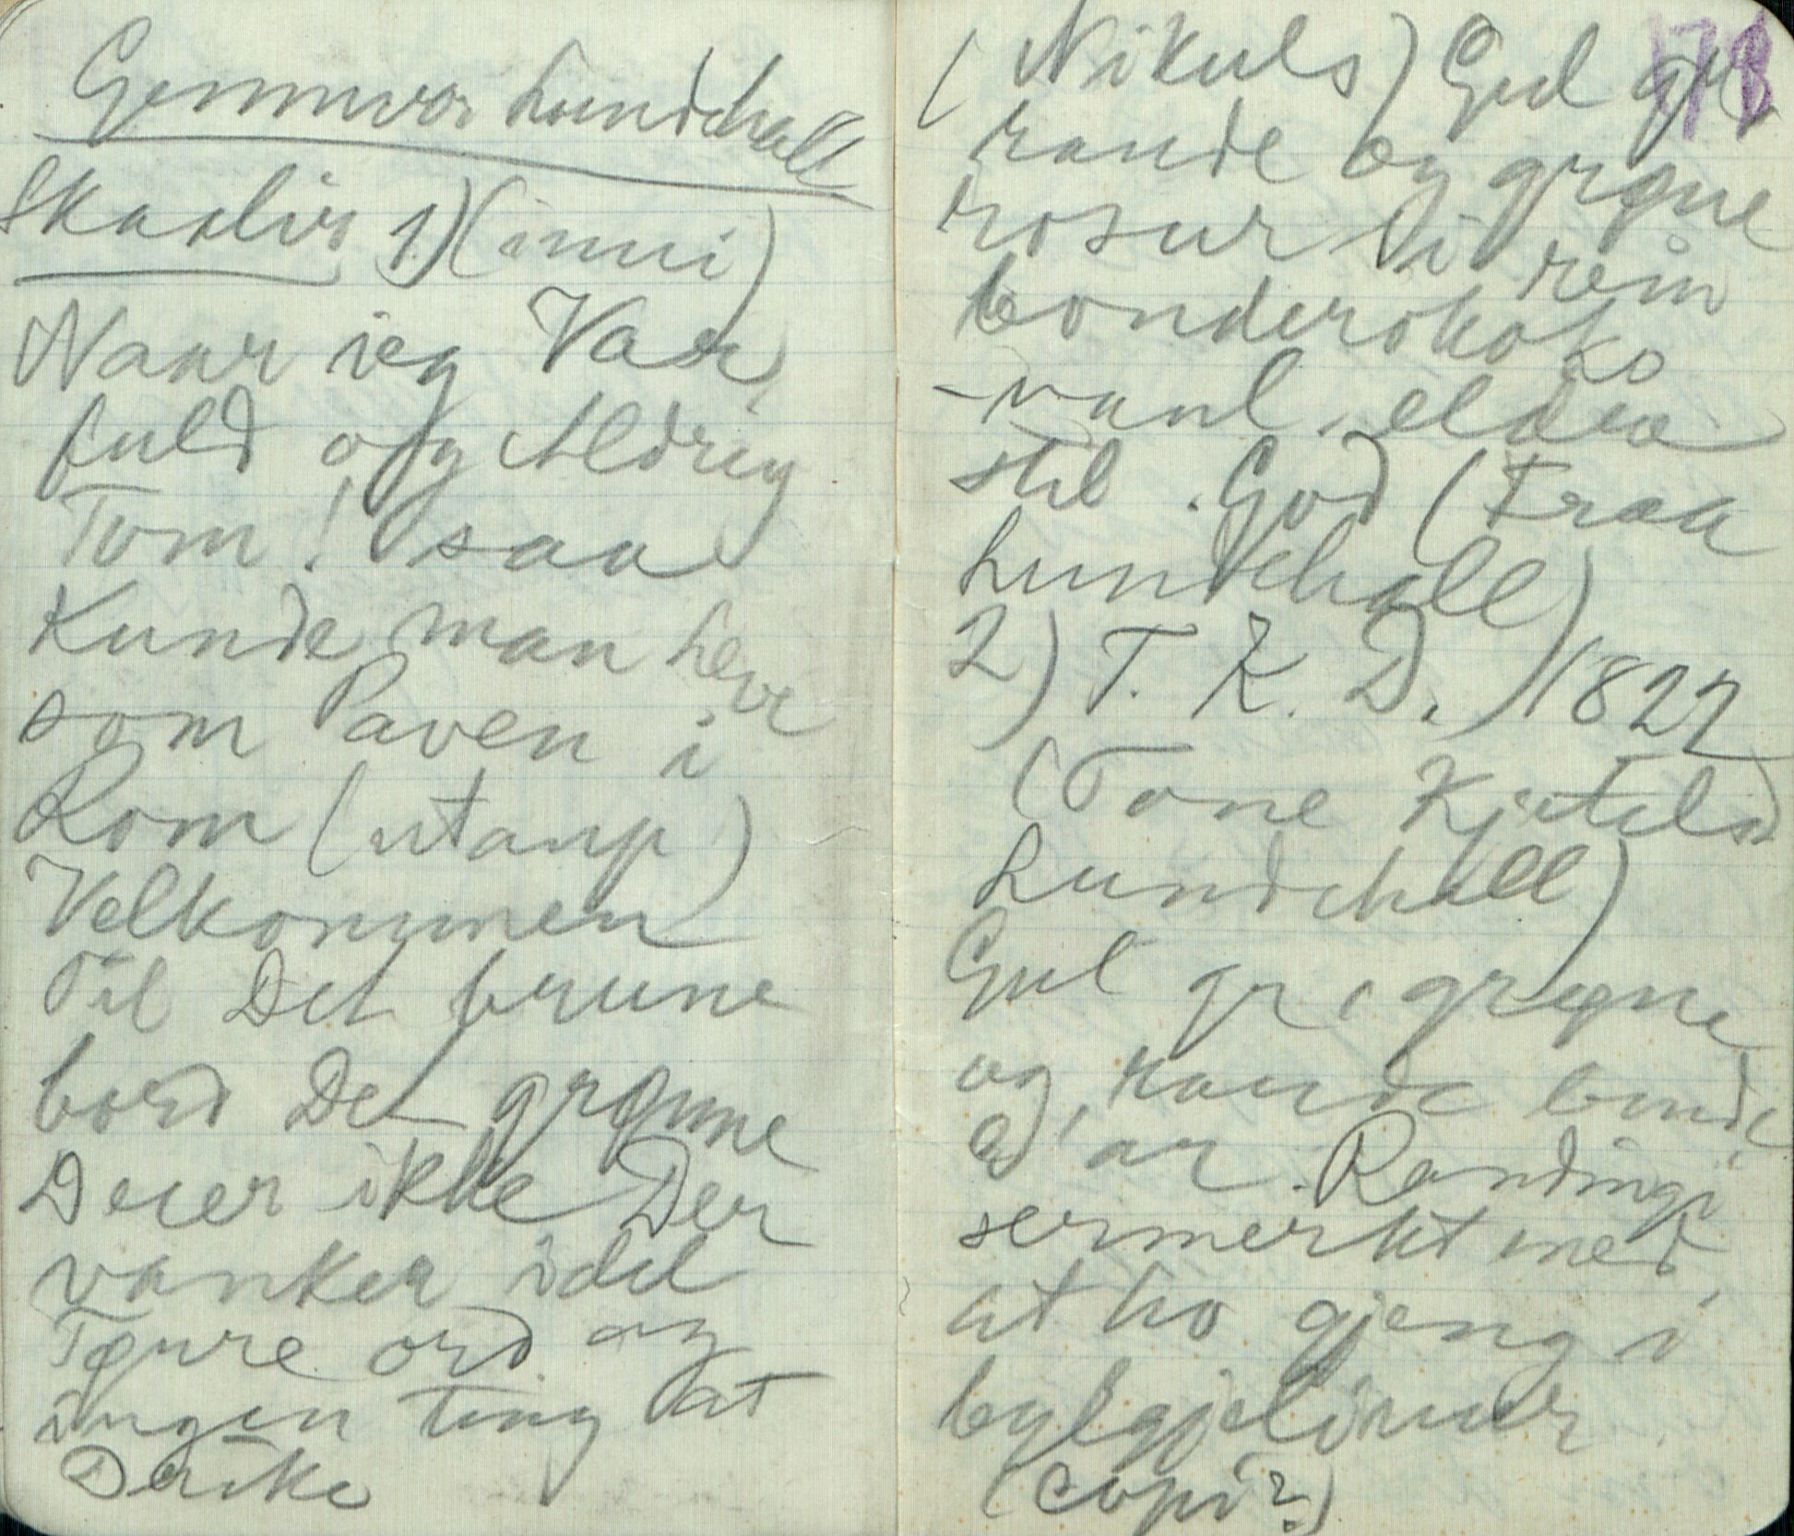 Gunnvor Lundehall
Skaalir 1) (inni)
Naar ieg Var
fuld og Aldrig
Tom! saa
Kunde man Leve
som Paven i
Rom (utanp)
Velkommen
Til Det brune
bord De grønne
Deier ikke Der
vanker idel
Tøure ord og
ingen ting at
Dricke
178
(Nikuls) Gul gr
raude og grøne
rosur i rein
bonderokoko
- vanl. eldra
stil. God (Fraa
Lundehall)
2) T. K. D. 1822
(Tone Kjetilsd
Lundehall)
Gul gr, grøne
og raude
ar. Randingi
sermerkt med
at ho gjeng i
bylgjelinur
(Copi?)